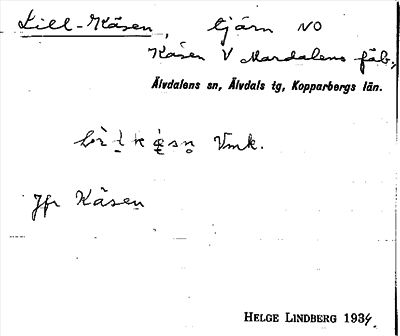 Lill-Kåsen, tjärn NO
Kåsen V Mardalens fäb.,
Älvdalens sn, Älvdals tg, Kopparbergs län.
Vmk.
Jfr Kåsen
HELGE LINDBERG 1934.